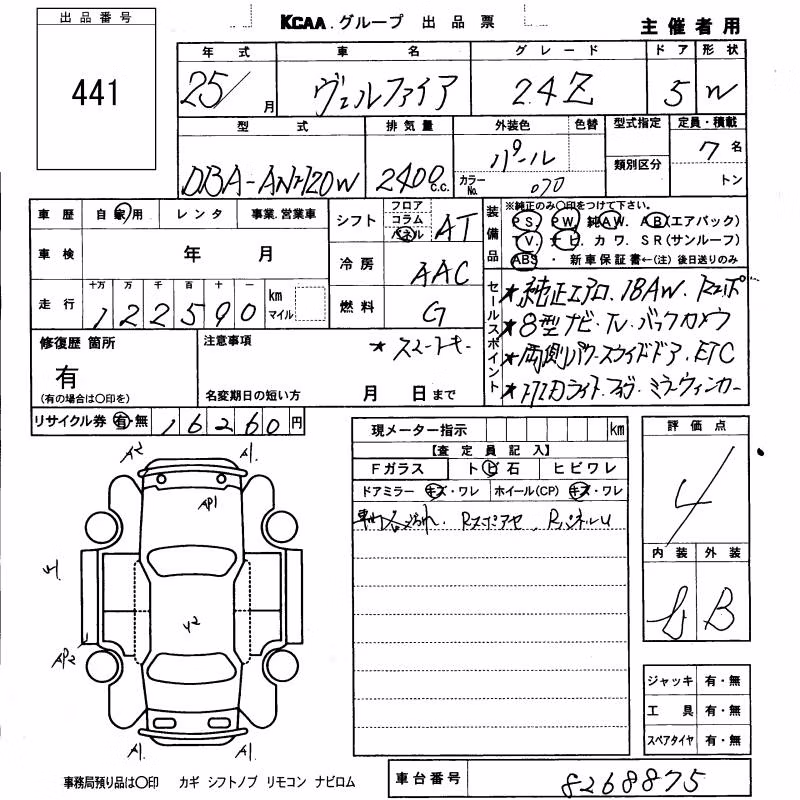 出品番号
441
KCAA.グループ 出品票
主催者用
年式 車名 グレード ドア 形状
25/ 月 ヴェルファイア 2.4Z 5 W
型式 排気量 外装色 色替 型式指定 定員・積載
DBA-ANH20W 2400 c.c. パール 類別区分 7名
カラーNo. 070 トン
車歴 自家用 レンタ 事業.営業車
車検 年 月
走行 十万 万 千 百 十 一 km マイル
122590
シフト フロア コラム パネル AT
冷房 AAC
燃料 G
装備品
※純正のみ〇印をつけて下さい。
PS. PW. 純AW. AB(エアバック)
TV. ナビ. カワ. SR(サンルーフ)
ABS ・ 新車保証書←(注) 後日送りのみ
セールスポイント
★純正エアロ.18AW.
★8型ナビ・TV・バックカメラ
★両側パワースライドドア.ETC
ライト・フォグ・ミラーウィンカー
修復歴 箇所
有
(有の場合は〇印を)
注意事項
★スマートキー
名変期日の短い方 月 日まで
リサイクル券 有・無 16260円
現メーター指示 km
【査定員記入】
Fガラス トビ石 ヒビワレ
ドアミラー キズ・ワレ ホイール(CP) キズ・ワレ
評価点
4
内装 外装
B
A2 A1
AP1
Y2
AP2
A1 A1
ジャッキ 有・無
工具 有・無
スペアタイヤ 有・無
事務局預り品は〇印 カギ シフトノブ リモコン ナビロム
車台番号 8268875